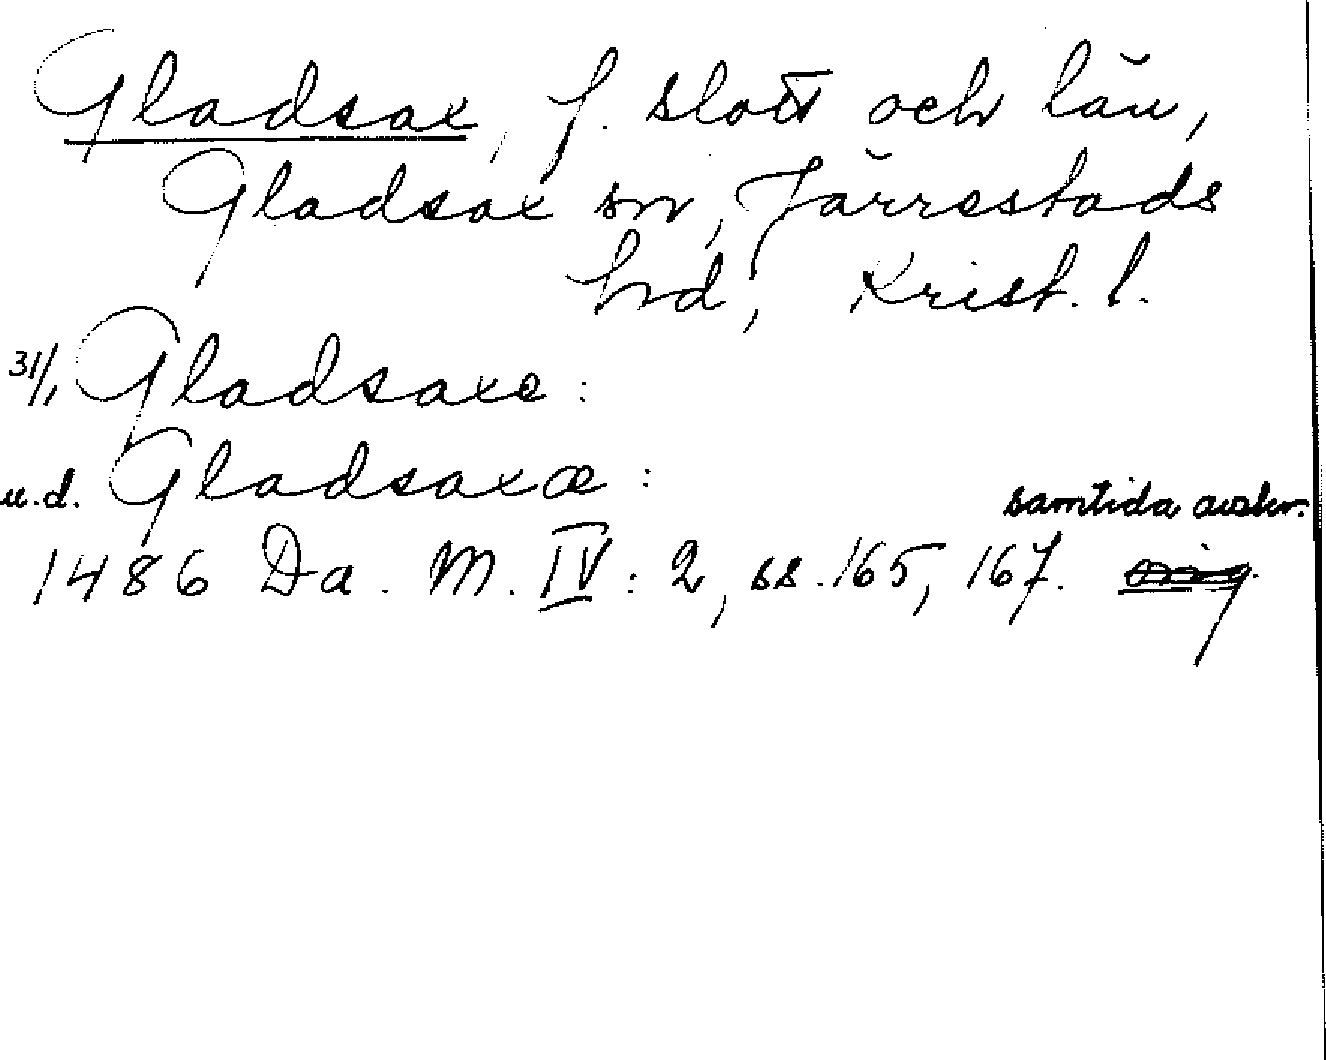 Gladsax, f. slott och län,
Gladsax sn, Järrestads
hd, Krist. l.
31/1 Gladsaxe:
u.d. Gladsaxæ:
samtida avskr.
1486 Da. M. IV: 2, ss. 165, 167. orig.